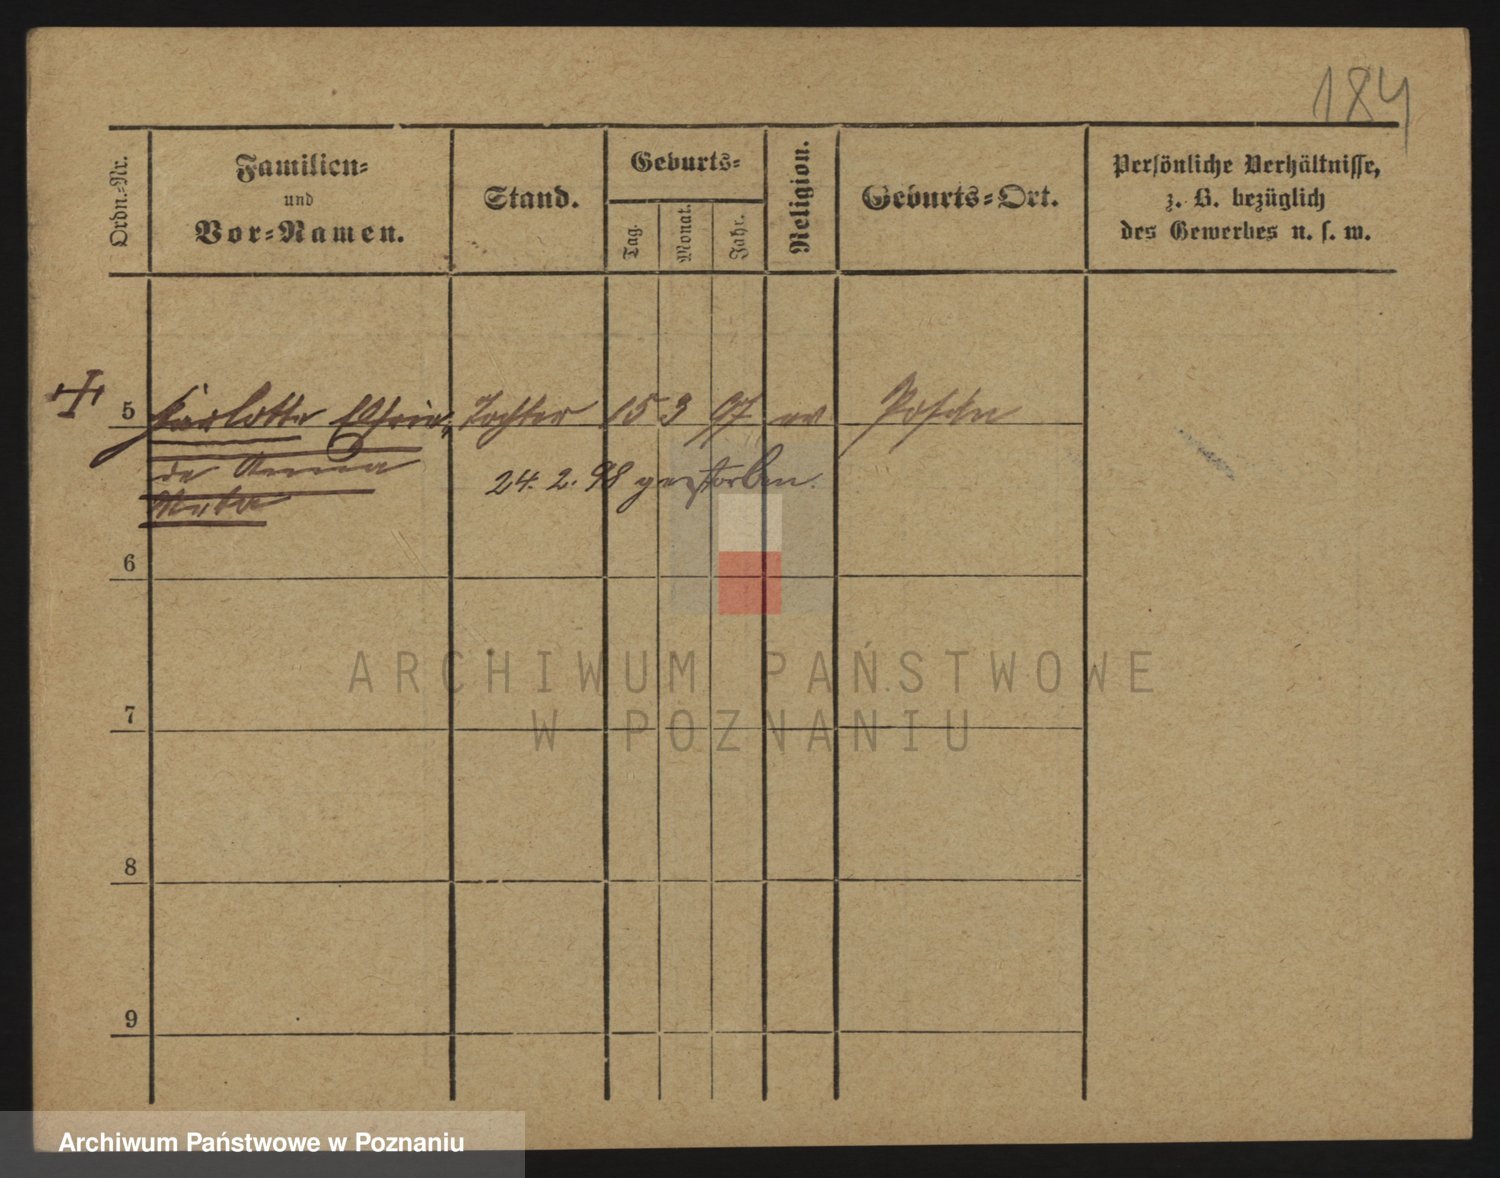 184
Ordn.-Nr.
Familien-
und
Vor-Namen.
Stand.
Geburts-
Tag.
Monat.
Jahr.
Religion.
Geburts-Ort.
Persönliche Verhältnisse,
z. B. bezüglich
des Gewerbes u. s. w.
5 Karlotte Tochter 15 3 97 ev Posen
de Anna
24. 2. 98 gestorben.
Meta
6
7
8
9
ARCHIWUM PAŃSTWOWE
W POZNANIU
Archiwum Państwowe w Poznaniu